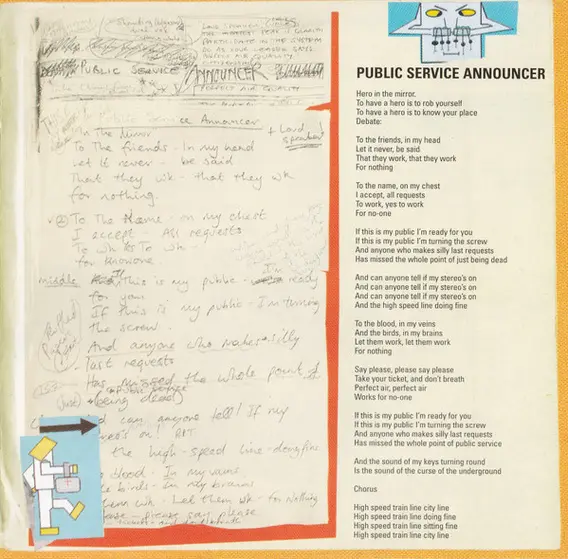 PUBLIC SERVICE ANNOUNCER
PERFECT AIR QUALITY
Public Service Announcer
In the Mirror
+ Loud speaker
To the friends - In my head
Let it never - be said
That they wk - that they wk
for nothing.
② To the Name - on my chest
I accept - All requests
To wk To wk -
for knowone
middle
If this is my public - I'm ready
for you
If this is my public - I'm turning
the screw.
And anyone who makes silly
last requests
Has missed the whole point of
(Just) (being dead)
can anyone tell! If my
on! RPT
the high-speed line-doing fine
blood - In my veins
birds - in my brains
Let them wk - for nothing
please say please
PUBLIC SERVICE ANNOUNCER
Hero in the mirror.
To have a hero is to rob yourself
To have a hero is to know your place
Debate:
To the friends, in my head
Let it never, be said
That they work, that they work
For nothing
To the name, on my chest
I accept, all requests
To work, yes to work
For no-one
If this is my public I'm ready for you
If this is my public I'm turning the screw
And anyone who makes silly last requests
Has missed the whole point of just being dead
And can anyone tell if my stereo's on
And can anyone tell if my stereo's on
And can anyone tell if my stereo's on
And the high speed line doing fine
To the blood, in my veins
And the birds, in my brains
Let them work, let them work
For nothing
Say please, please say please
Take your ticket, and don't breath
Perfect air, perfect air
Works for no-one
If this is my public I'm ready for you
If this is my public I'm turning the screw
And anyone who makes silly last requests
Has missed the whole point of public service
And the sound of my keys turning round
Is the sound of the curse of the underground
Chorus
High speed train line city line
High speed train line doing fine
High speed train line sitting fine
High speed train line city line